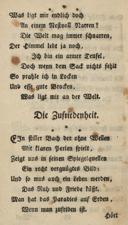 Was ligt mir endlich doch
An einem Nestvoll Narren!
Die Welt mag immer schnarren,
Der Himmel lebt ja noch.
Ich bin ein armer Teufel,
Doch wem der Sack nichts fehlt
So prahle ich in Locken
Und eße gute Brocken.
Was ligt mir an der Welt.
Die Zufriedenheit.
Ein stiller Bach der ohne Wellen
Mit klaren Perlen spielt,
Zeigt uns in seinen Spiegelquellen
Ein recht vergnügtes Bild:
Und so muß auch ein Leben werden,
Das Ruh und Friede küßt,
Man hat das Paradies auf Erden
Wenn man zufrieden ist.
Hört